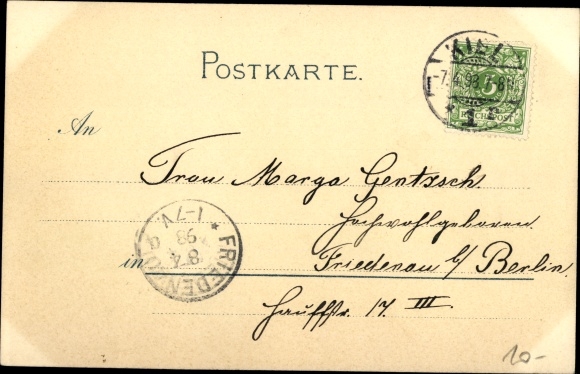 POSTKARTE.
KIEL
-7.4.98. 7-8N.
* 1 e
5
REICHSPOST
An
Frau Marga Gentzsch.
Hochwohlgeboren.
in Friedenau b/ Berlin.
Hauffstr. 17. III
FRIEDENAU
8.4.
98
1-7V.
10-